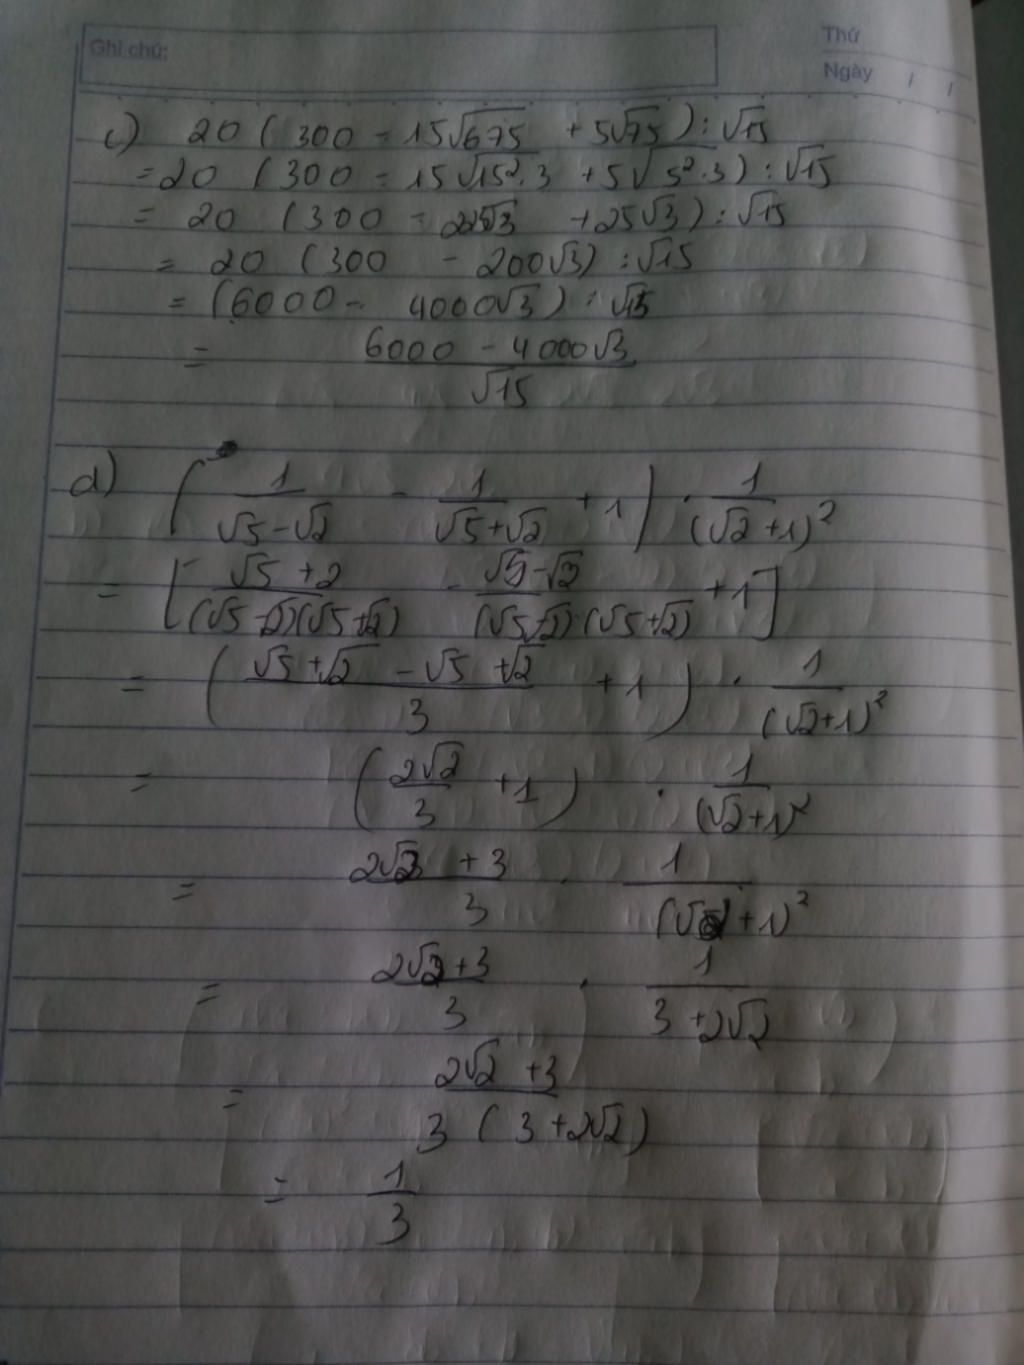 Ghi chú:
Thứ
Ngày / /
c) 20 (300 - 15√675 + 5√75) : √15
= 20 (300 - 15√15².3 + 5√5².3) : √15
= 20 (300 - 225√3 + 25√3) : √15
= 20 (300 - 200√3) : √15
= (6000 - 4000√3) : √15
= (6000 - 4000√3)/√15
d) (1/(√5-√2) - 1/(√5+√2) + 1) . 1/(√2+1)²
= [(√5+2)/((√5-√2)(√5+√2)) - (√5-√2)/((√5-√2).(√5+√2)) + 1]
= ((√5+√2 - √5+√2)/3 + 1) . 1/(√2+1)²
= (2√2/3 + 1) . 1/(√2+1)²
= (2√2 + 3)/3 . 1/(√2+1)²
= (2√2+3)/3 . 1/(3+2√2)
= (2√2+3)/(3(3+2√2))
= 1/3